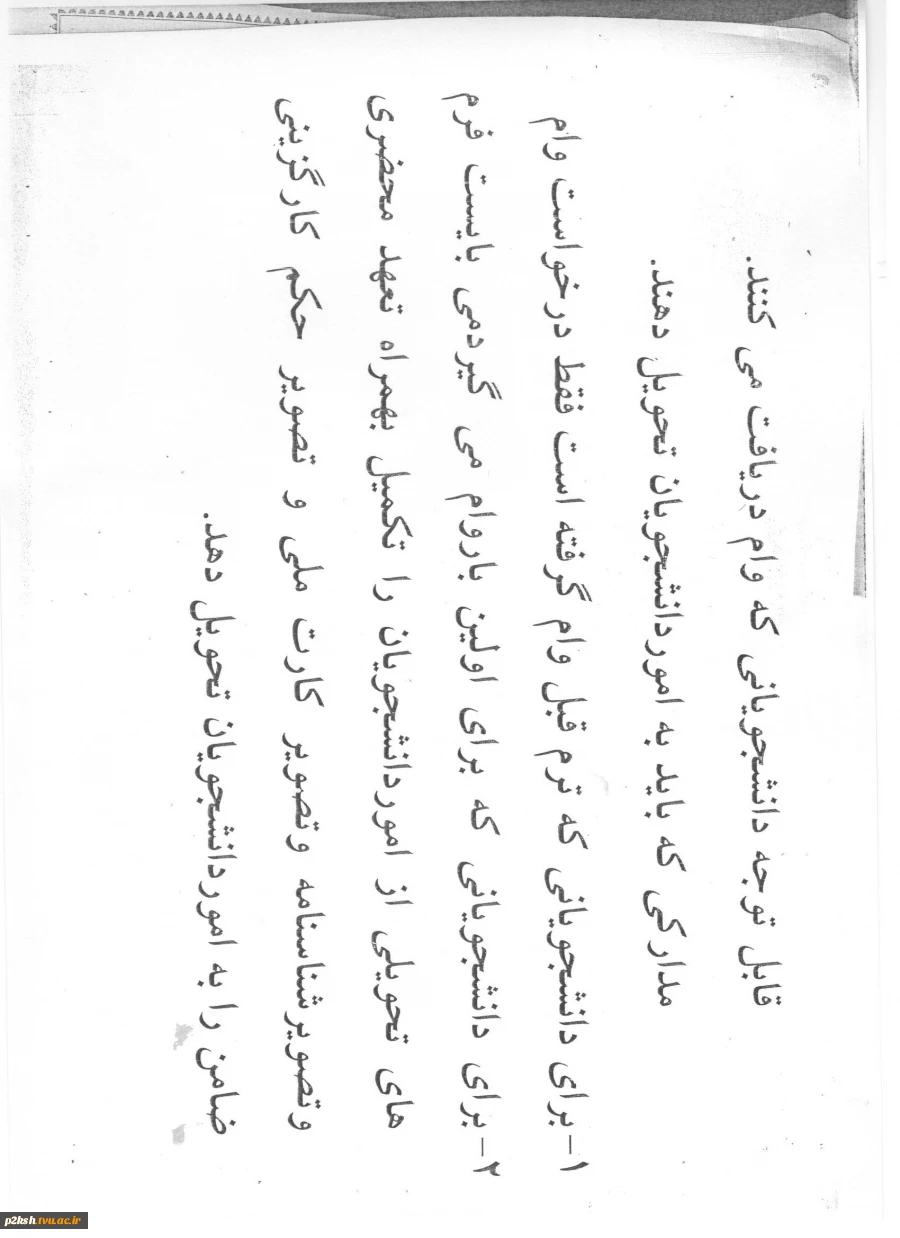 قابل توجه دانشجویانی که وام دریافت می کنند.
مدارکی که باید به اموردانشجویان تحویل دهند.
۱-برای دانشجویانی که ترم قبل وام گرفته است فقط درخواست وام
۲-برای دانشجویانی که برای اولین باروام می گیردمی بایست فرم
های تحویلی از اموردانشجویان را تکمیل بهمراه تعهد محضری
وتصویرشناسنامه وتصویر کارت ملی و تصویر حکم کارگزینی
ضامن را به اموردانشجویان تحویل دهد.
p2ksh.tvu.ac.ir